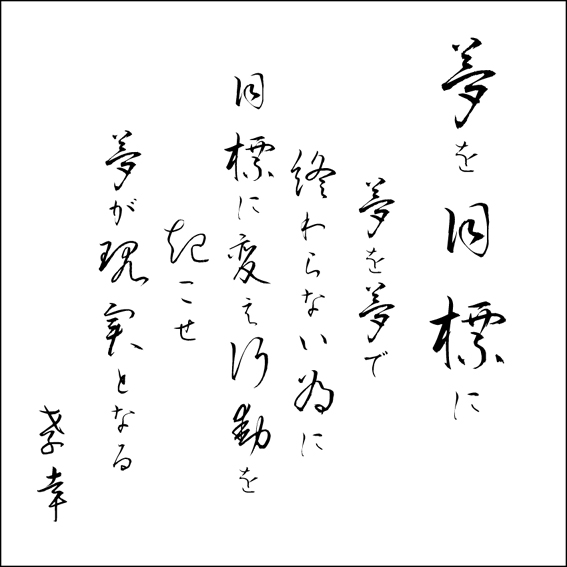 夢を目標に
夢を夢で
終わらない為に
目標に変え行動を
起こせ
夢が現実となる
孝幸